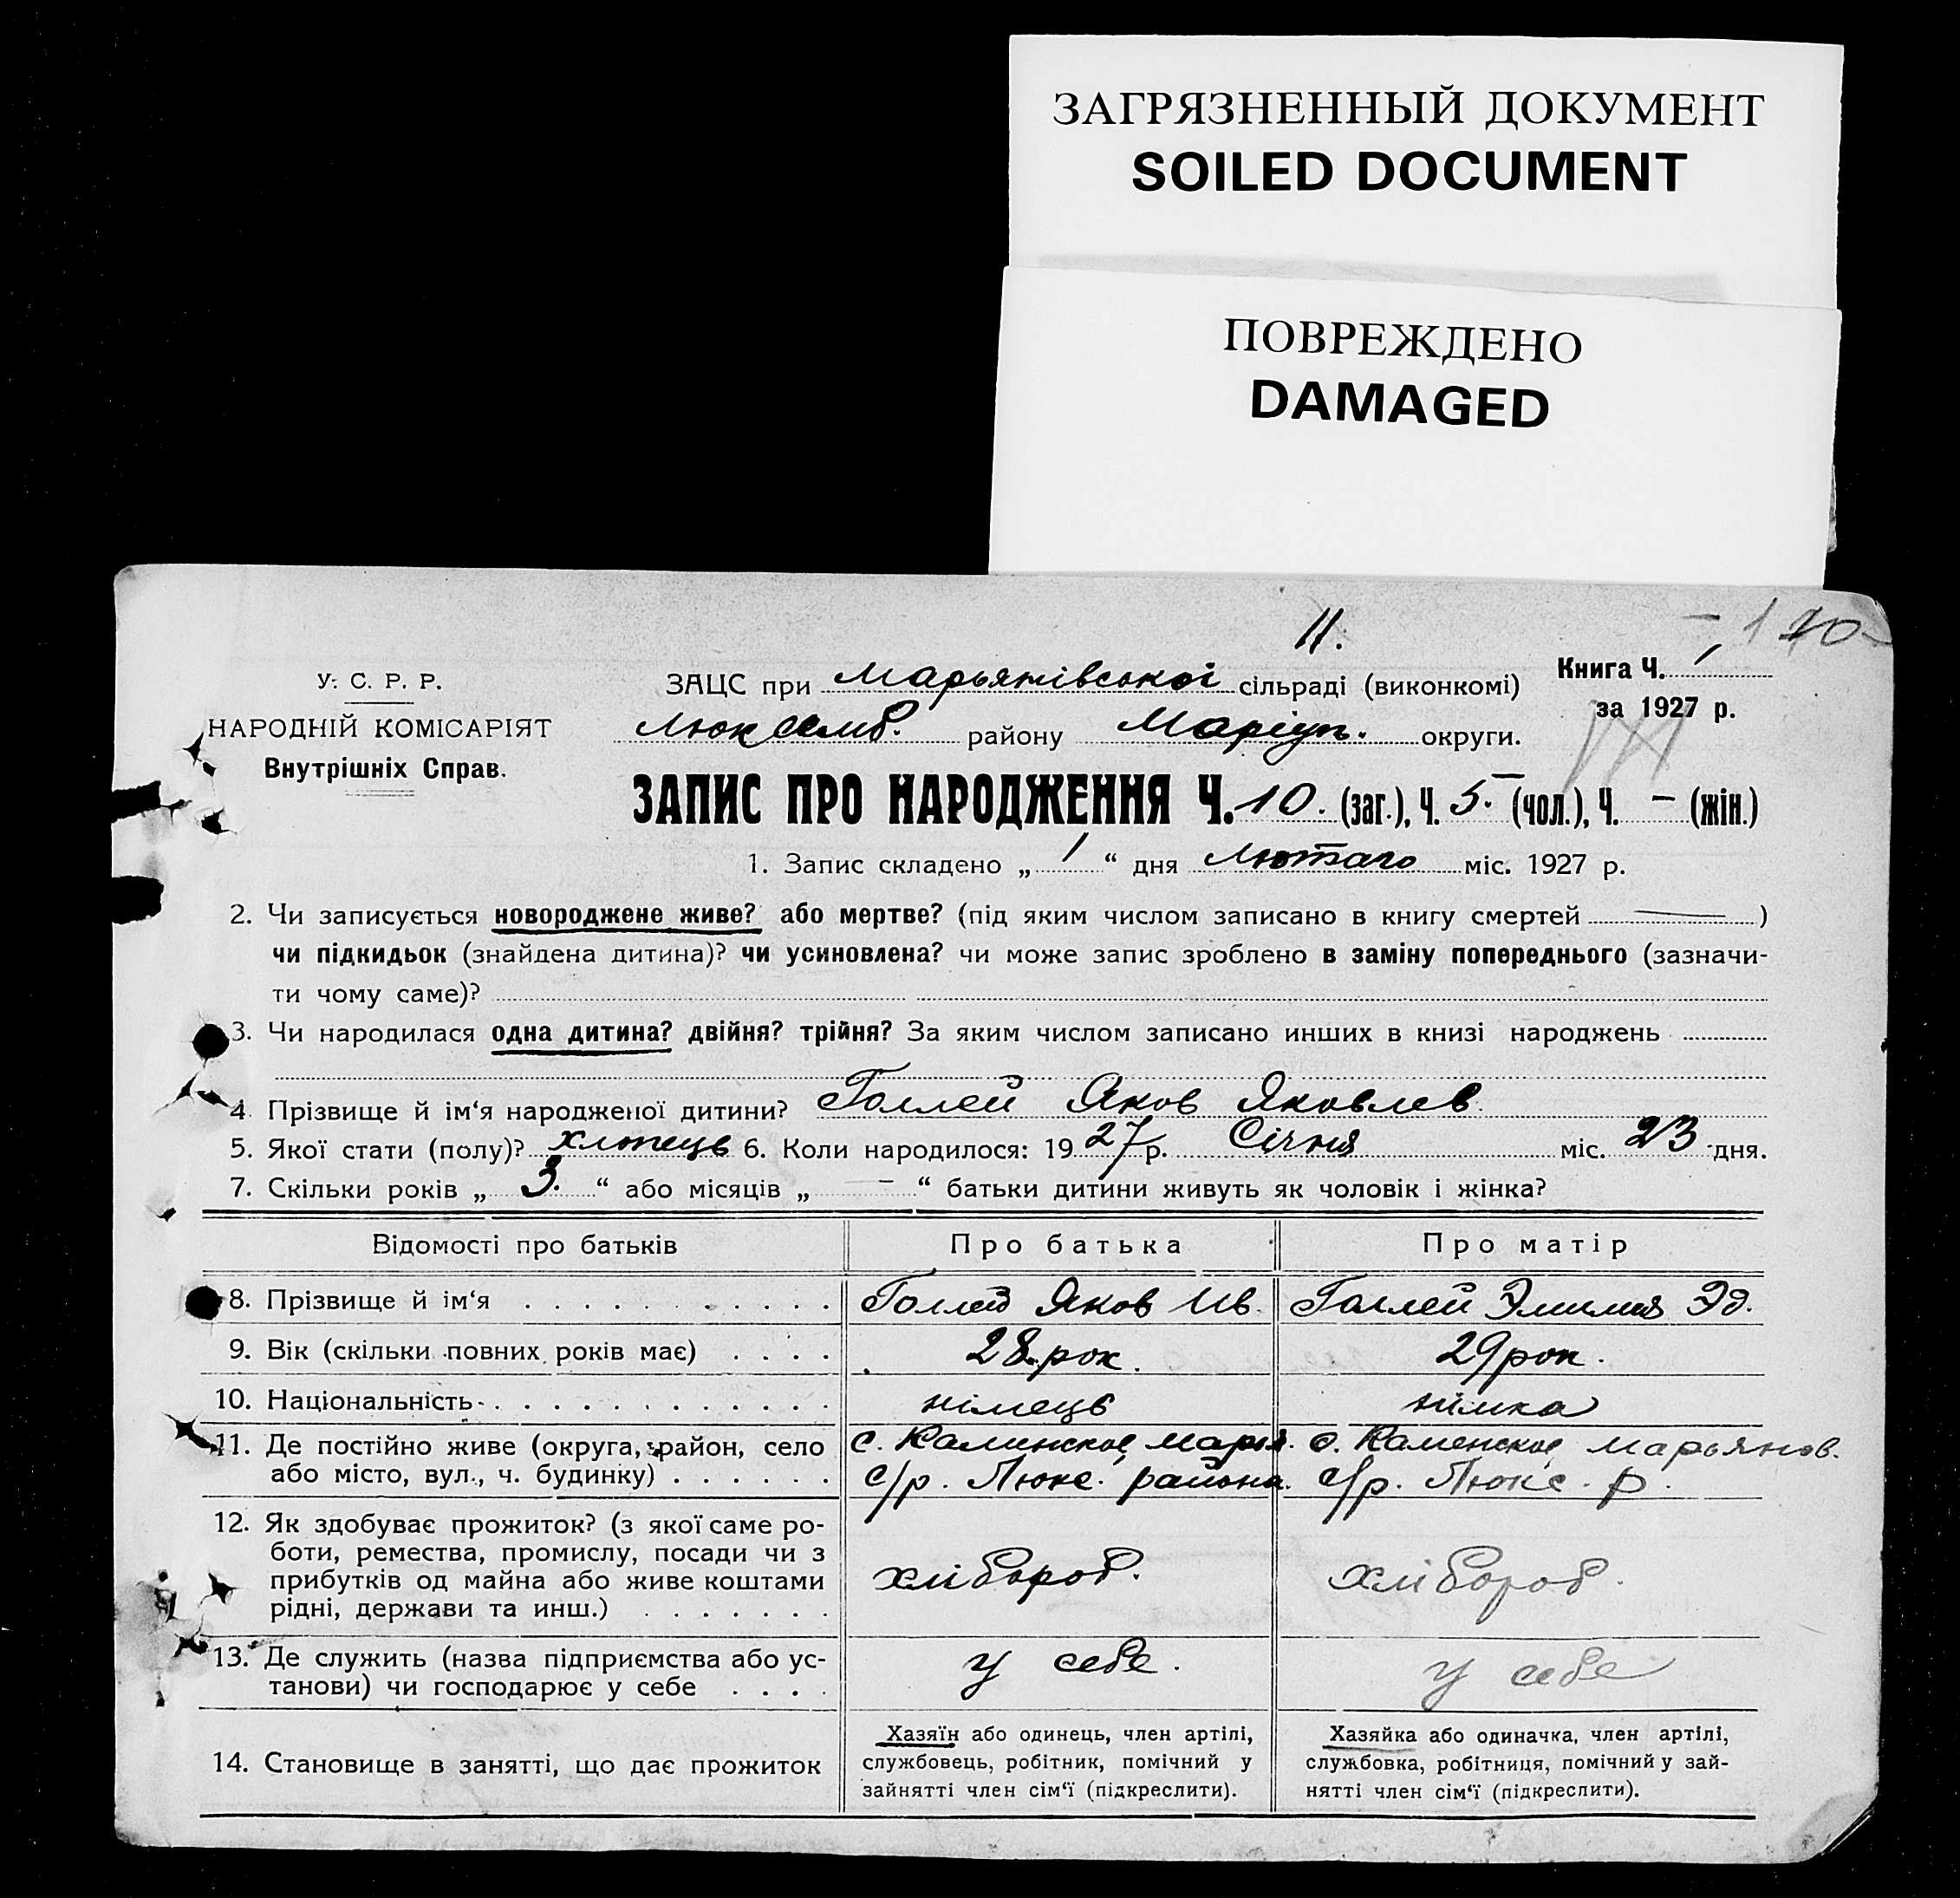 ЗАГРЯЗНЕННЫЙ ДОКУМЕНТ
SOILED DOCUMENT
ПОВРЕЖДЕНО
DAMAGED
11.
У. С. Р. Р.
НАРОДНІЙ КОМІСАРІЯТ
Внутрішніх Справ.
ЗАЦС при Марьянівської сільраді (виконкомі)
Люксемб. району Маріуп. округи.
Книга Ч. 1
за 1927 р.
ЗАПИС ПРО НАРОДЖЕННЯ Ч. 10. (заг.), Ч. 5. (чол.), Ч. – (жін.)
1. Запис складено „ 1 “ дня Лютаго міс. 1927 р.
2. Чи записується новороджене живе? або мертве? (під яким числом записано в книгу смертей — )
чи підкидьок (знайдена дитина)? чи усиновлена? чи може запис зроблено в заміну попереднього (зазначи-
ти чому саме)?
3. Чи народилася одна дитина? двійня? трійня? За яким числом записано инших в книзі народжень
4. Прізвище й ім‘я народженої дитини? Голлей Яков Яковлев
5. Якої стати (полу)? хлопець 6. Коли народилося: 1927 р. Січня міс. 23 дня.
7. Скільки років „ 3. “ або місяців „ – “ батьки дитини живуть як чоловік і жінка?
Відомості про батьків Про батька Про матір
8. Прізвище й ім‘я Голлей Яков Ив. Голлей Эмилия Эд.
9. Вік (скільки повних років має) 28 рок. 29 рок.
10. Національність німець німка
11. Де постійно живе (округа, район, село с. Калинское, Марья. с. Каменское, Марьянов.
або місто, вул., ч. будинку) с/р. Люкс. района. с/р. Люкс. р.
12. Як здобуває прожиток? (з якої саме ро-
боти, ремества, промислу, посади чи з
прибутків од майна або живе коштами
рідні, держави та инш.)
хлібороб. хлібороб.
13. Де служить (назва підприємства або ус-
танови) чи господарює у себе
у себе. у себе
14. Становище в занятті, що дає прожиток
Хазяїн або одинець, член артілі,
службовець, робітник, помічний у
зайнятті член сім‘ї (підкреслити).
Хазяйка або одиначка, член артілі,
службовка, робітниця, помічний у зай-
нятті член сім‘ї (підкреслити).